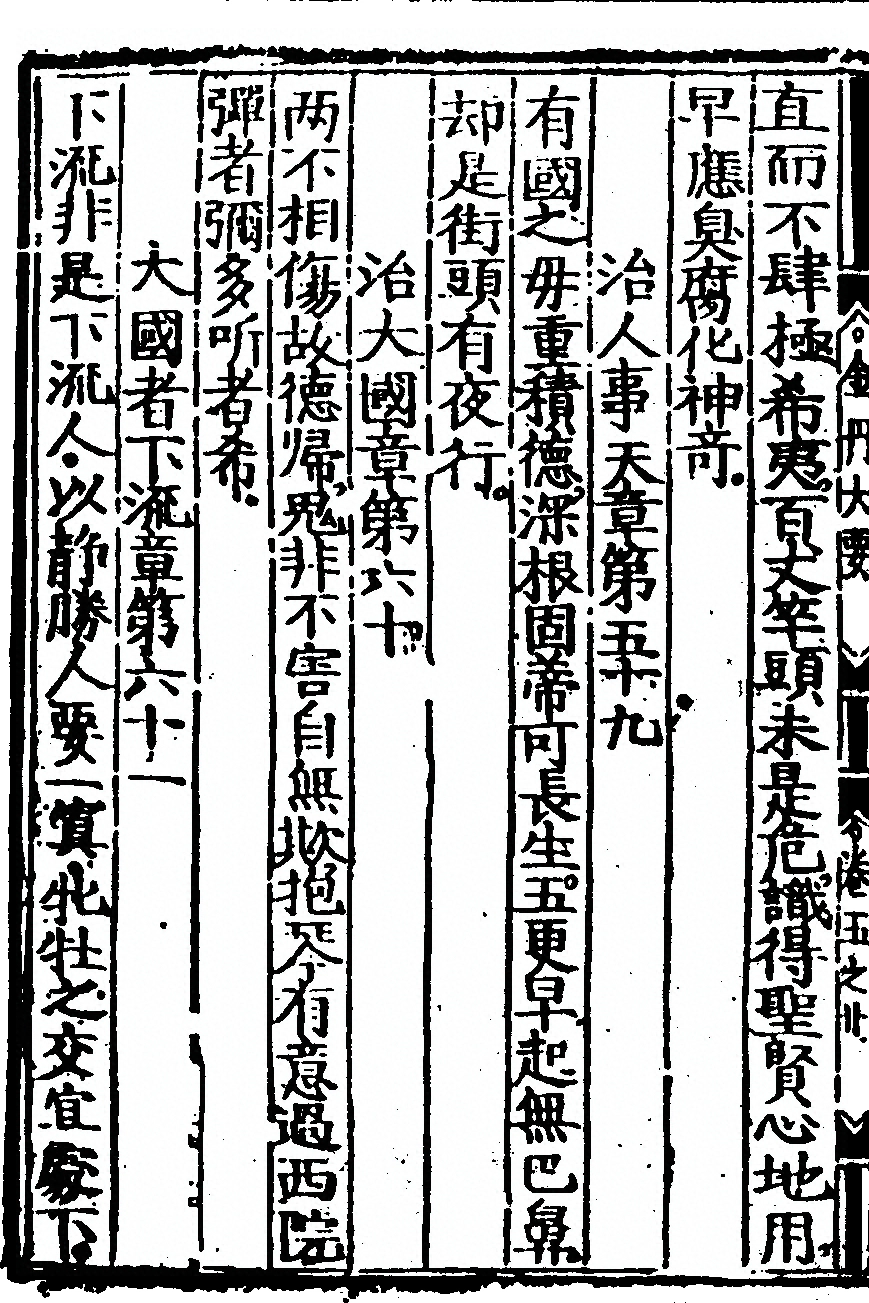 金丹大要
卷五之
直而不肆極希夷百丈竿頭未是危識得聖賢心地用
早應臭腐化神奇
治人事天章第五十九
有國之毋重積德深根固蒂可長生五更早起無巴鼻
却是街頭有夜行
治大國章第六十
两不相傷故德歸鬼非不害自無欺抱琴有意過西院
彈者彌多听者希
大國者下流章第六十一
下流非是下流人以静勝人要一真牝牡之交宜處下